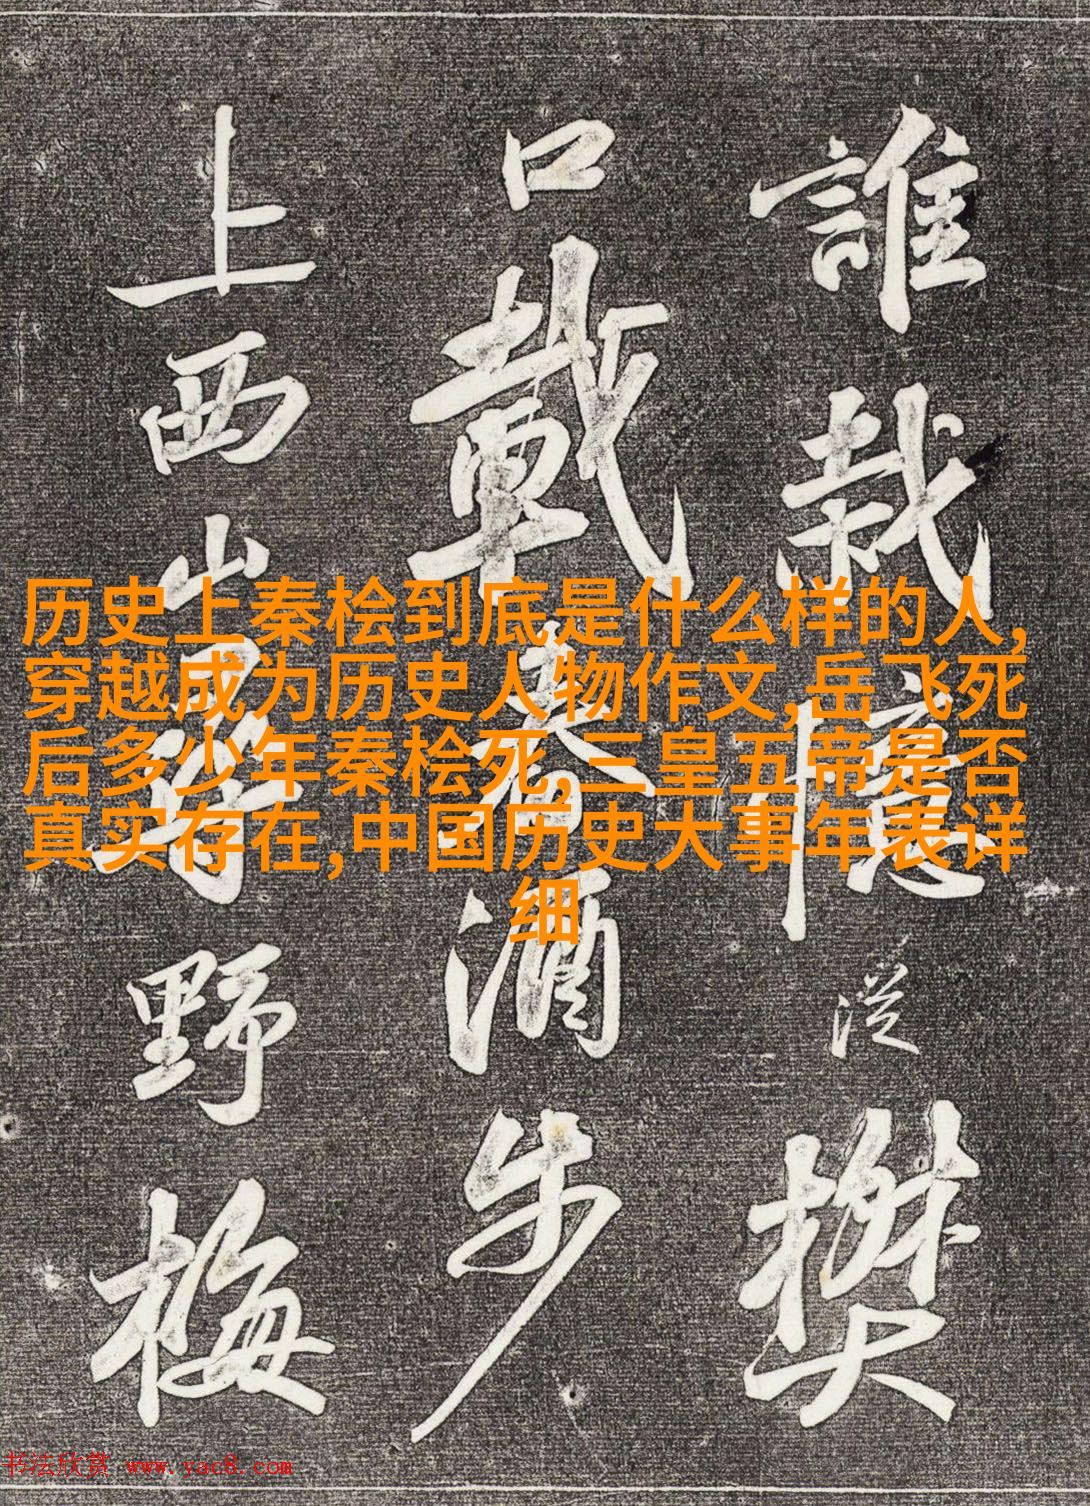 誰栽憶從樊
口載春酒步
上西山尋野梅
历史上秦桧到底是什么样的人,
穿越成为历史人物作文,岳飞死
后多少年秦桧死,三皇五帝是否
真实存在,中国历史大事年表详
细
书法欣赏 www.yac8.com